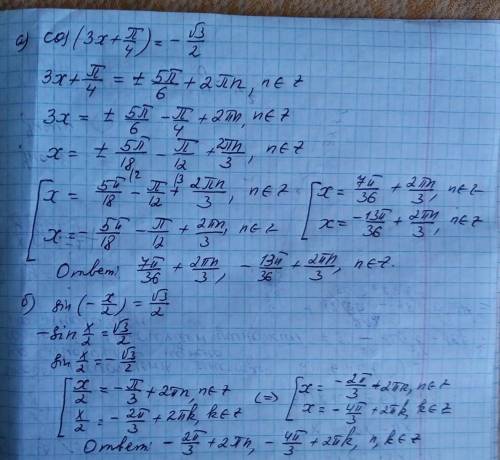 а) cos(3x + π/4) = - √3/2
3x + π/4 = ± 5π/6 + 2πn, n∈Z
3x = ± 5π/6 - π/4 + 2πn, n∈Z
x = ± 5π/18 - π/12 + 2πn/3, n∈Z
[ x = 5π/18 - π/12 + 2πn/3, n∈Z [ x = 7π/36 + 2πn/3, n∈Z
x = - 5π/18 - π/12 + 2πn/3, n∈Z x = -13π/36 + 2πn/3, n∈Z
Ответ: 7π/36 + 2πn/3, - 13π/36 + 2πn/3, n∈Z.
б) sin(- x/2) = √3/2
- sin x/2 = √3/2
sin x/2 = - √3/2
[ x/2 = - π/3 + 2πn, n∈Z (=) [ x = - 2π/3 + 2πk, n∈Z
x/2 = - 2π/3 + 2πk, k∈Z x = - 4π/3 + 2πk, k∈Z
Ответ: - 2π/3 + 2πn, - 4π/3 + 2πk, n, k∈Z